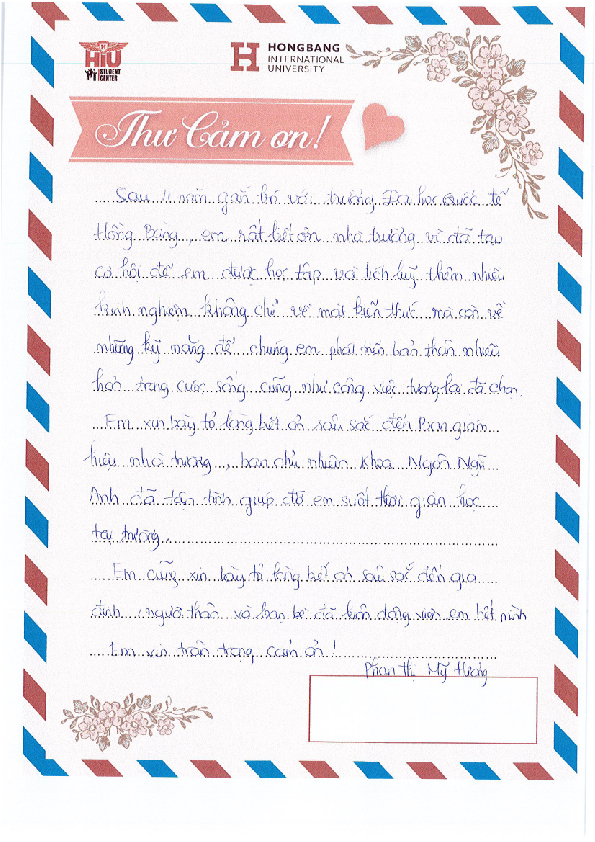 HIU
STUDENT
CENTER
HONGBANG
INTERNATIONAL
UNIVERSITY
Thư Cảm ơn!
Sau 4 năm gắn bó với trường Đại học Quốc tế
Hồng Bàng, em rất biết ơn nhà trường vì đã tạo
cơ hội để em được học tập và tích luỹ thêm nhiều
kinh nghiệm không chỉ về mặt kiến thức mà còn về
những kỹ năng để chúng em phát triển bản thân nhiều
hơn trong cuộc sống cũng như công việc tương lai đã chọn.
Em xin bày tỏ lòng biết ơn sâu sắc đến Ban giám
hiệu nhà trường, ban chủ nhiệm khoa Ngôn Ngữ
Anh đã tận tình giúp đỡ em suốt thời gian học
tại trường.
Em cũng xin bày tỏ lòng biết ơn sâu sắc đến gia
đình, người thân và bạn bè đã luôn động viên em hết mình
Em xin trân trọng cảm ơn!
Phan Thị Mỹ Hương